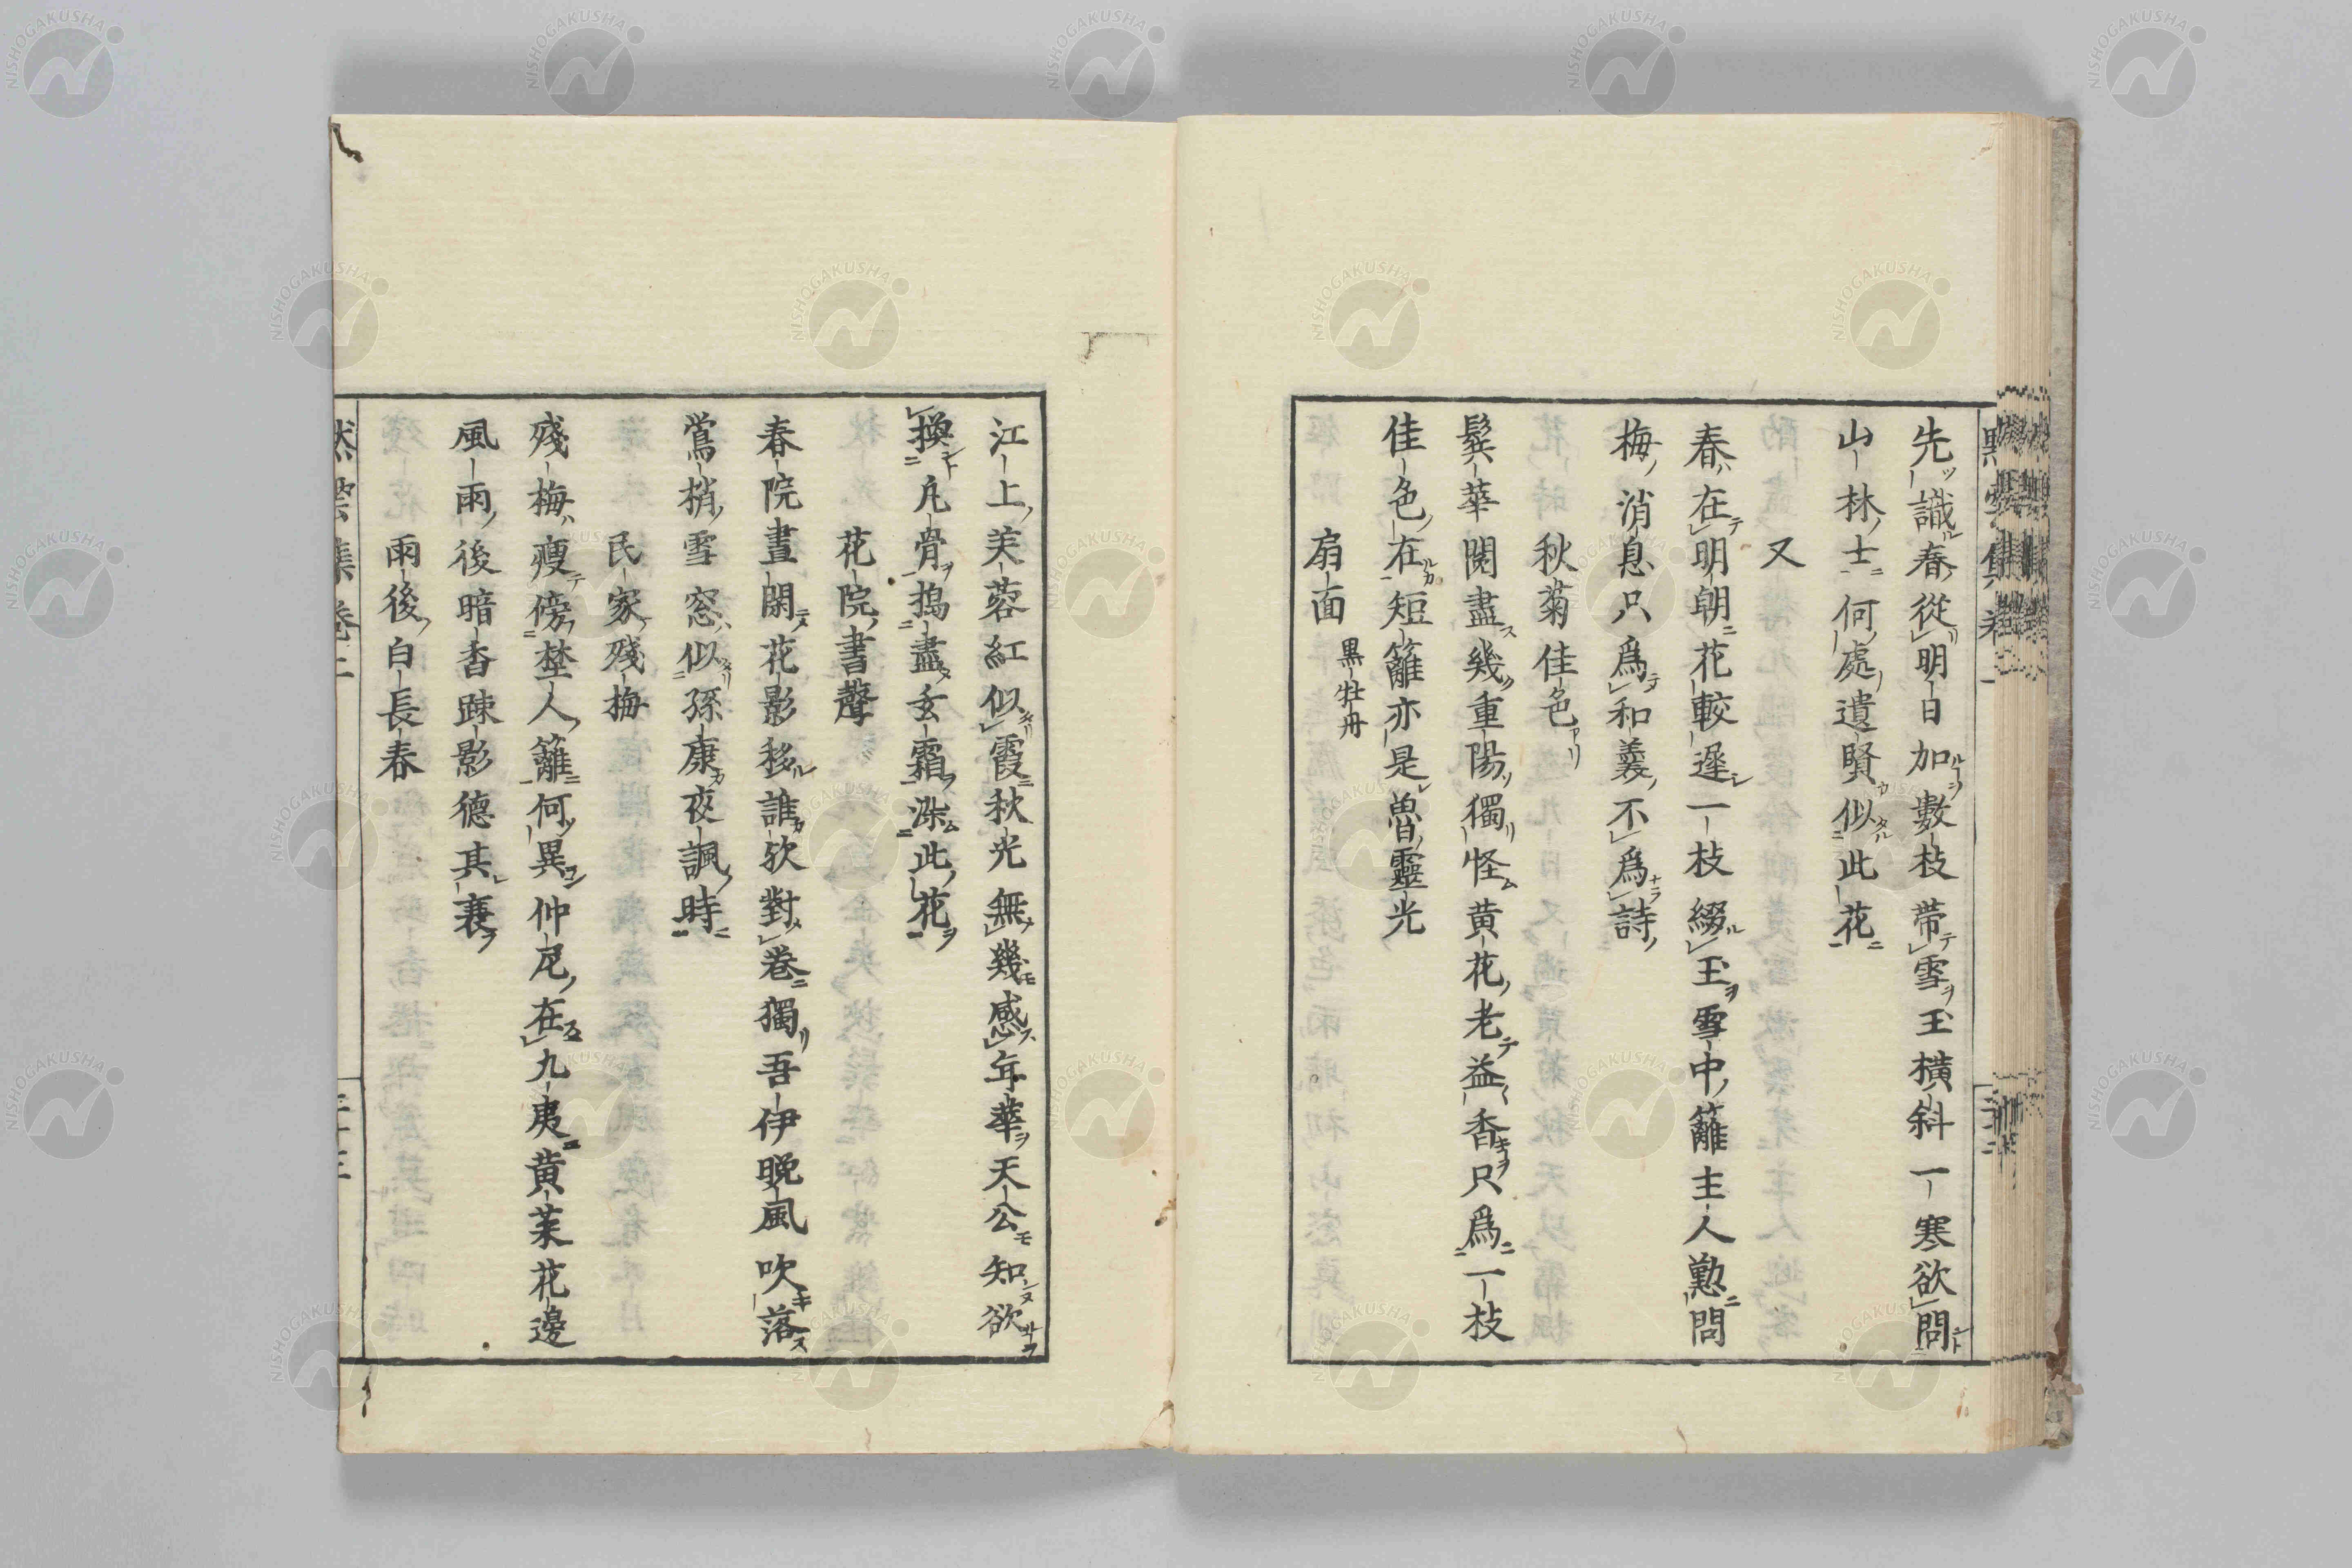 先識春從明日加數枝帶雪玉橫斜一寒欲問
山林士何處遺賢似此花
又
春在明朝花較遲一枝綴玉雪中籬主人懃問
梅消息只爲和羲不爲詩
秋菊佳色
鬢華閱盡幾重陽獨怪黄花老益香只爲一枝
佳色在短籬亦是魯靈光
扇面 黒牡丹
江上芙蓉紅似霞秋光無幾感年華天公知欲
換凡骨搗盡玄霜染此花
花院書聲
春院晝閑花影移誰欤對卷獨吾伊晩風吹落
鶯梢雪窓似孫康夜諷時
民家殘梅
殘梅瘦傍埜人籬何異仲尼在九夷黄茉花邊
風雨後暗香踈影德其衰
雨後白長春
黙雲集卷二
NISHOGAKUSHA